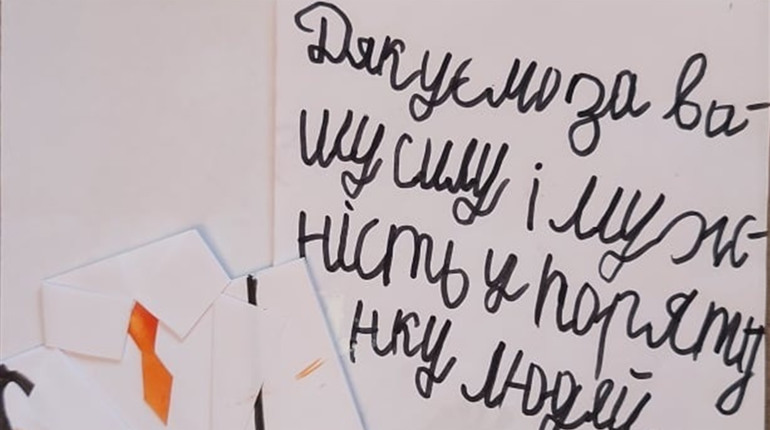 Дякуємо за ва-
шу силу і муж-
ність у поряту
нку людей